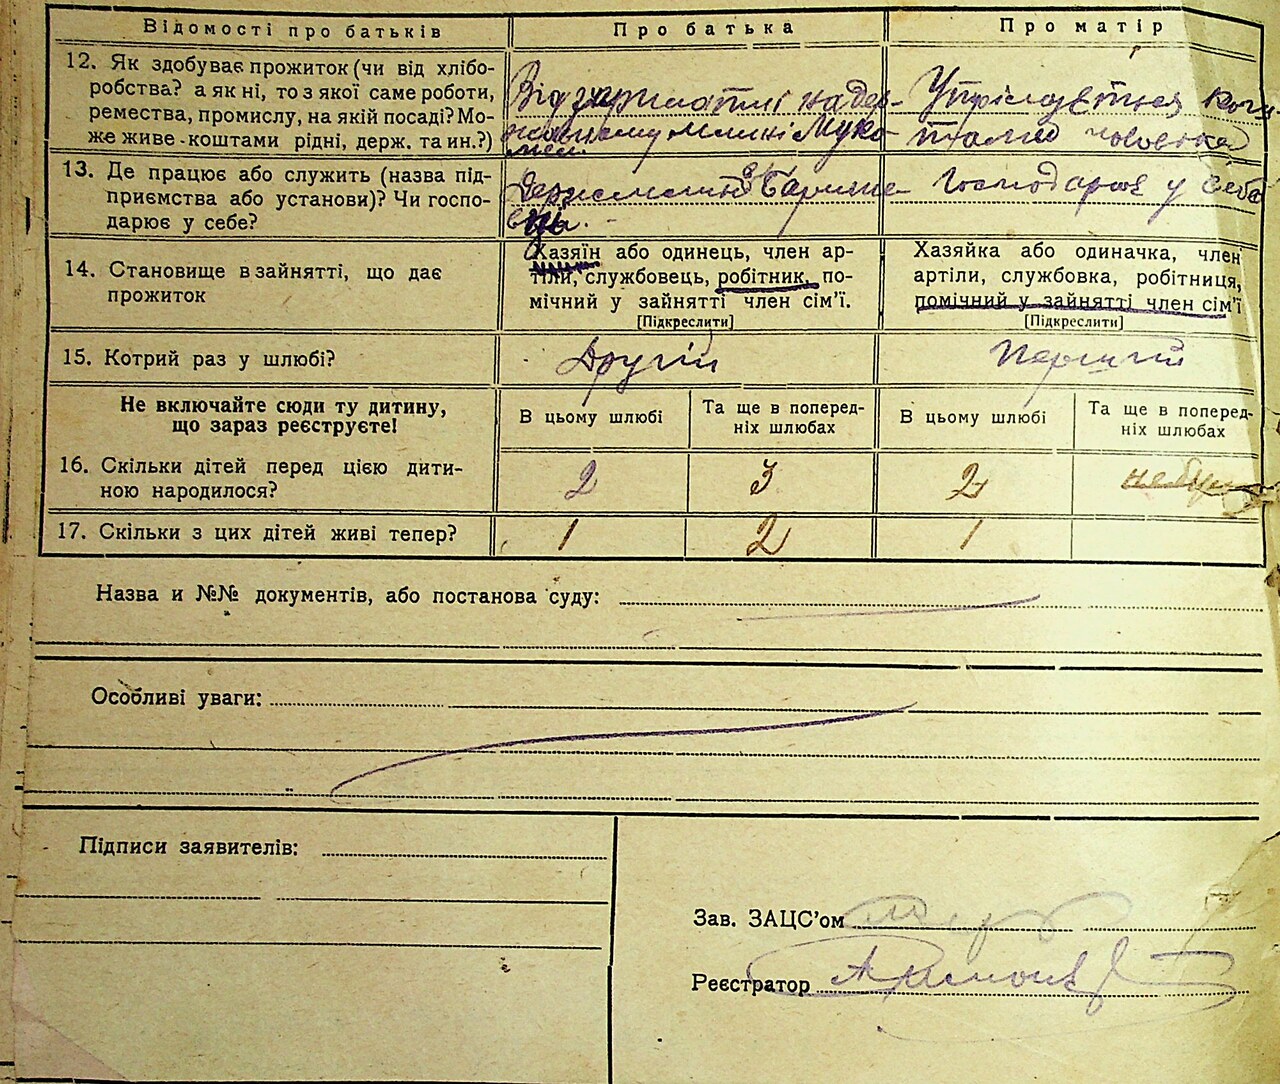 Відомості про батьків
Про батька
Про матір
12. Як здобуває прожиток (чи від хлібо-
робства? а як ні, то з якої саме роботи,
ремества, промислу, на якій посаді? Мо-
же живе коштами рідні, держ. та ин.?)
Від зарплатні на дер-
жавному млині Муко-
мел.
Утрімується кош
тами чоловіка
13. Де працює або служить (назва під-
приємства або установи)? Чи госпо-
дарює у себе?
Держмлин
Господарює у себе
14. Становище в зайнятті, що дає
прожиток
Хазяїн або одинець, член ар-
тіли, службовець, робітник, по-
мічний у зайнятті член сім’ї.
[Підкреслити]
Хазяйка або одиначка, член
артіли, службовка, робітниця,
помічний у зайнятті член сім’ї
[Підкреслити]
15. Котрий раз у шлюбі?
Другій
Першій
Не включайте сюди ту дитину,
що зараз реєструєте!
В цьому шлюбі
Та ще в поперед-
ніх шлюбах
В цьому шлюбі
Та ще в поперед-
ніх шлюбах
16. Скільки дітей перед цією дити-
ною народилося?
2
3
2
17. Скільки з цих дітей живі тепер?
1
2
1
Назва и №№ документів, або постанова суду:
Особливі уваги:
Підписи заявителів:
Зав. ЗАЦС’ом
Реєстратор